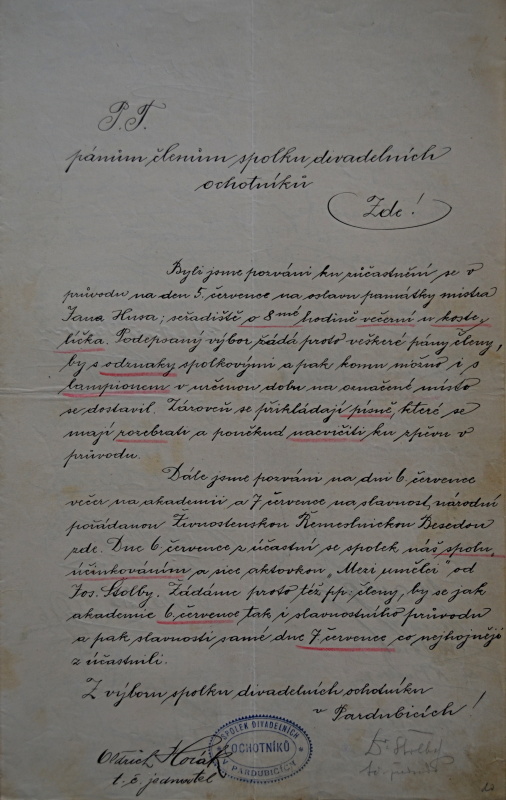 P. T.
pánům členům spolku divadelních
ochotníků
Zde!
Byli jsme pozváni ku zúčastnění se v
průvodu na den 5. července na oslavu památky mistra
Jana Husa; seřadiště o 8mé hodině večerní u koste-
líčka. Podepsaný výbor žádá proto veškeré pány členy,
by s odznaky spolkovými a pak komu možno i s
lampionem v určenou dobu na označené místo
se dostavil. Zároveň se přikládají písně, které se
mají rozebrati a poněkud nacvičiti ku zpěvu v
průvodu.
Dále jsme pozváni na dni 6. července
večer na akademii a 7 července na slavnost národní
pořádanou Živnostenskou Řemeslnickou Besedou
zde. Dne 6. července z účastní se spolek náš spolu-
účinkováním a sice aktovkou „Mezi umělci" od
Jos. Štolby. Žádáme proto též pp. členy, by se jak
akademie 6. července tak i slavnostního průvodu
a pak slavnosti samé dne 7. července co nejhojněji
z účastnili.
Z výboru spolku divadelních ochotníku
v Pardubicích!
SPOLEK DIVADELNÍCH
OCHOTNÍKŮ
V PARDUBICÍCH
Oldřich Horák
t. č. jednatel
Dr